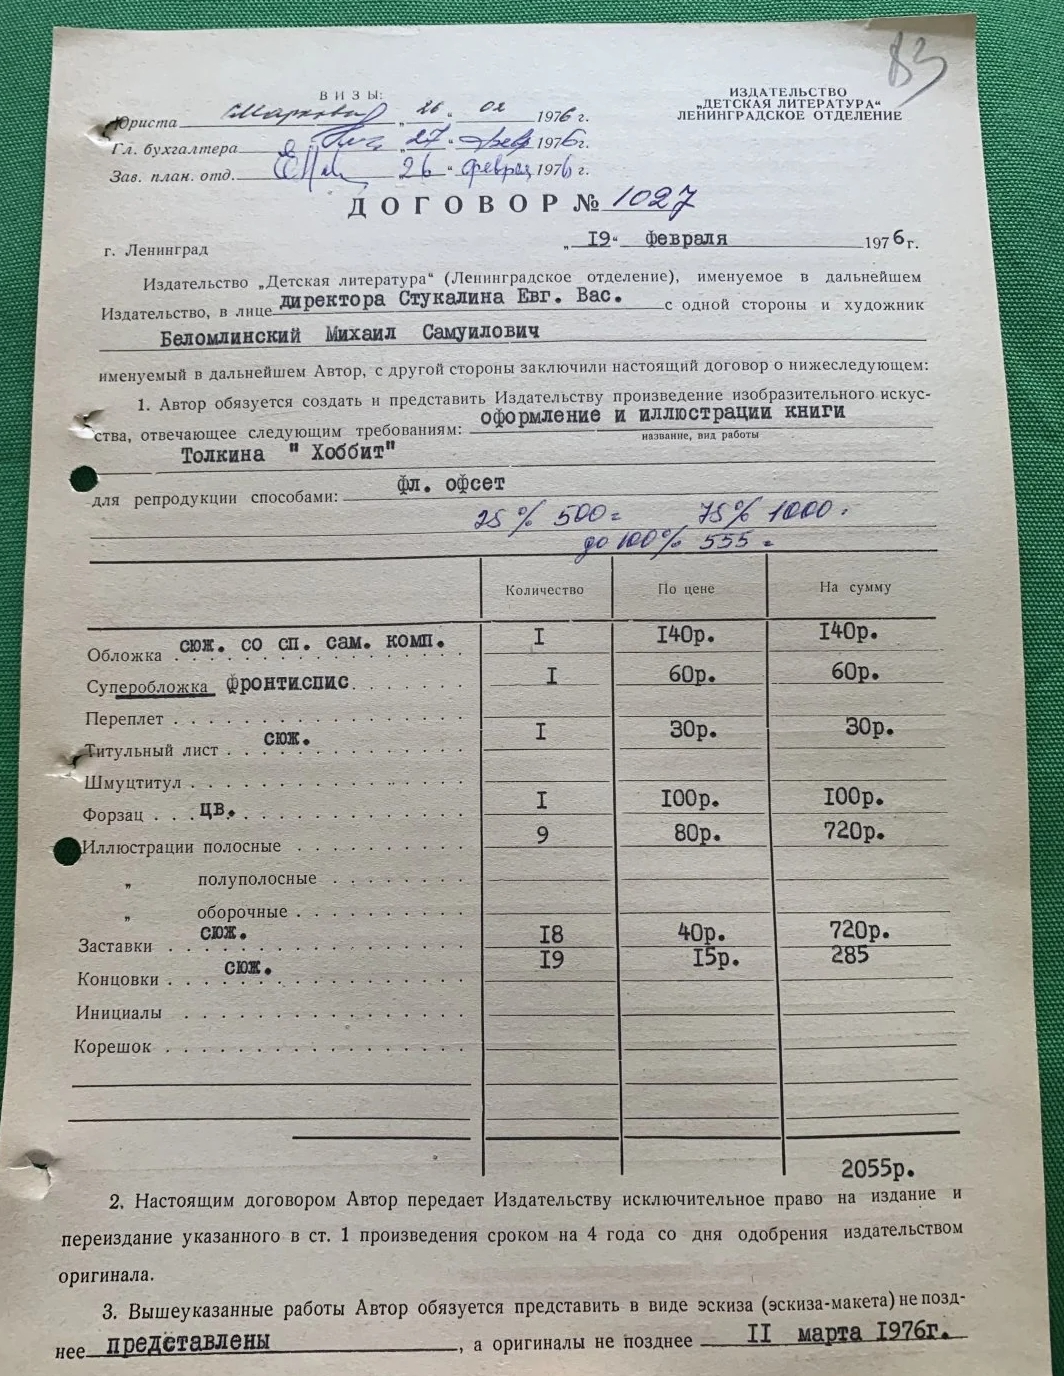 83
ВИЗЫ:
ИЗДАТЕЛЬСТВО
„ДЕТСКАЯ ЛИТЕРАТУРА“
ЛЕНИНГРАДСКОЕ ОТДЕЛЕНИЕ
Юриста „26“ 02 1976 г.
Гл. бухгалтера „27“ февр 1976 г.
Зав. план. отд. „26“ феврал 1976 г.
ДОГОВОР № 1027
г. Ленинград „19“ февраля 1976 г.
Издательство „Детская литература“ (Ленинградское отделение), именуемое в дальнейшем
Издательство, в лице директора Стукалина Евг. Вас. с одной стороны и художник
Беломлинский Михаил Самуилович
именуемый в дальнейшем Автор, с другой стороны заключили настоящий договор о нижеследующем:
1. Автор обязуется создать и представить Издательству произведение изобразительного искус-
ства, отвечающее следующим требованиям: оформление и иллюстрации книги
название, вид работы
Толкина " Хоббит"
для репродукции способами: фл. офсет
25% 500= 75% 1000.
до 100% 555=
Количество По цене На сумму
Обложка сюж. со сп. сам. комп. I I40р. I40р.
Суперобложка фронтиспис I 60р. 60р.
Переплет
Титульный лист сюж. I 30р. 30р.
Шмуцтитул
Форзац цв. I I00р. I00р.
Иллюстрации полосные 9 80р. 720р.
„ полуполосные
„ оборочные
Заставки сюж. I8 40р. 720р.
Концовки сюж. I9 I5р. 285
Инициалы
Корешок
2055р.
2. Настоящим договором Автор передает Издательству исключительное право на издание и
переиздание указанного в ст. 1 произведения сроком на 4 года со дня одобрения издательством
оригинала.
3. Вышеуказанные работы Автор обязуется представить в виде эскиза (эскиза-макета) не позд-
нее представлены, а оригиналы не позднее II марта I976г.